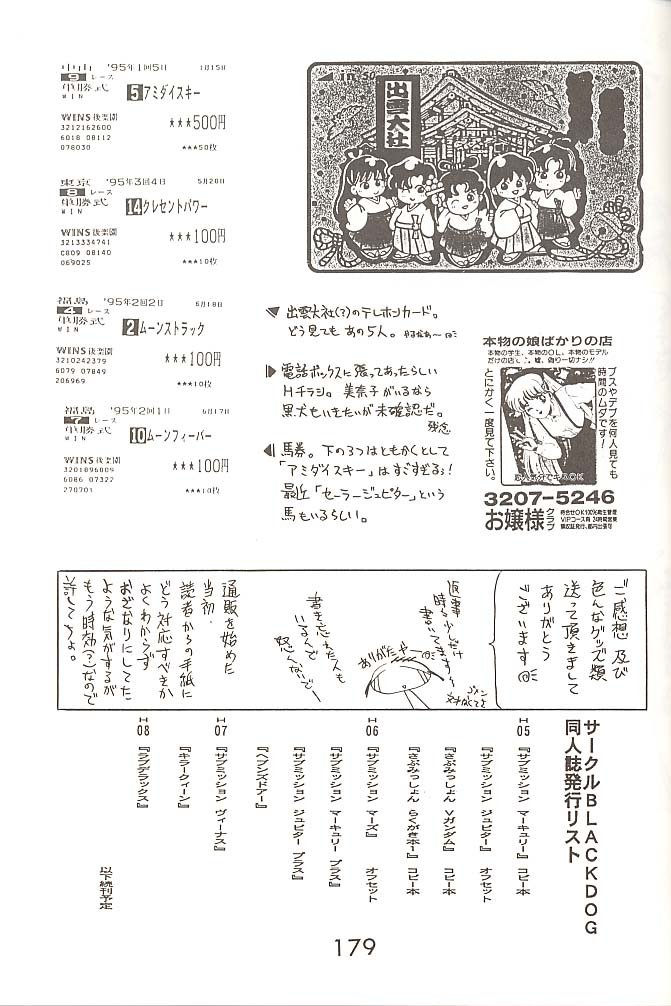 中山 '95年1回5日 1月15日
9 レース
単勝式 5 アミダイスキー
WIN
WINS後楽園 ★★★500円
3212162600
6018 08112
078030 ★★★50枚
東京 '95年3回4日 5月28日
8 レース
単勝式 14 クレセントパワー
WIN
WINS後楽園 ★★★100円
3213334741
C809 08140
069025 ★★★10枚
福島 '95年2回2日 6月18日
4 レース
単勝式 2 ムーンストラック
WIN
WINS後楽園 ★★★100円
3210242379
6079 07849
206969 ★★★10枚
福島 '95年2回1日 6月17日
7 レース
単勝式 10 ムーンフィーバー
WIN
WINS後楽園 ★★★100円
3201896809
6086 07322
270701 ★★★10枚
50
出雲大社
出雲大社(?)のテレホンカード。
どう見てもあの5人。
電話ボックスに張ってあったらしい
Hチラシ。美奈子がいるなら
黒犬もいきたいが未確認だ。
残念
馬券。下の3つはともかくとして
「アミダイスキー」はすごすぎる!
最近「セーラージュピター」という
馬もいるらしい。
本物の娘ばかりの店
本物の学生、本物のOL、本物のモデル
だけの店で、嘘、偽り一切ナシ!!
ブスやデブを何人見ても
時間のムダです!
とにかく一度見て下さい。
恋人気分でキスOK
3207-5246
お嬢様クラブ
待合せOK100%衛生管理
VIPコース有 24時間営業
領収証発行、都内出張可
ご感想 及び
色んなグッズ類
送って頂きまして
ありがとう
ございます
返事
時々少しだけ
書いてますケド
ありがたや
書き忘れた人も
いるくど
怒くないで
通販を始めた
当初、
読者からの手紙に
どう対応すべきか
よくわからず
おざなりにしてた
ような気がするが
もう時効(?)なので
許してちょ。
サークルBLACKDOG
同人誌発行リスト
H05
『サブミッション マーキュリー』 コピー本
『サブミッション ジュピター』 オフセット
『さぶみっしょん Vガンダム』 コピー本
『さぶみっしょん らくがきホー1』 コピー本
H06
『サブミッション マーズ』 オフセット
『サブミッション マーキュリー プラス』
『サブミッション ジュピター プラス』
『ヘブンズドアー』
H07
『サブミッション ヴィーナス』
『キラークィーン』
H08
『ラブデラックス』
以下続刊予定
179